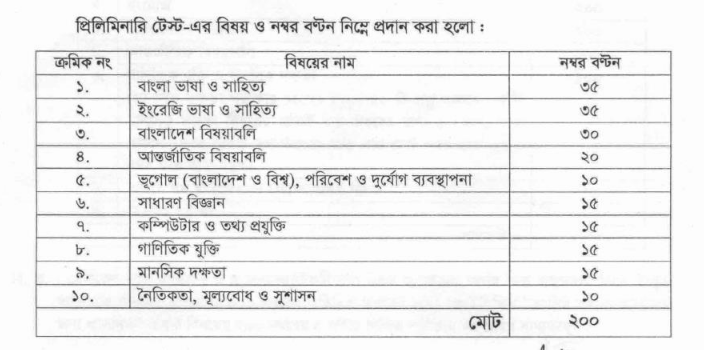 প্রিলিমিনারি টেস্ট-এর বিষয় ও নম্বর বণ্টন নিম্নে প্রদান করা হলো :
ক্রমিক নং বিষয়ের নাম নম্বর বণ্টন
১. বাংলা ভাষা ও সাহিত্য ৩৫
২. ইংরেজি ভাষা ও সাহিত্য ৩৫
৩. বাংলাদেশ বিষয়াবলি ৩০
৪. আন্তর্জাতিক বিষয়াবলি ২০
৫. ভূগোল (বাংলাদেশ ও বিশ্ব), পরিবেশ ও দুর্যোগ ব্যবস্থাপনা ১০
৬. সাধারণ বিজ্ঞান ১৫
৭. কম্পিউটার ও তথ্য প্রযুক্তি ১৫
৮. গাণিতিক যুক্তি ১৫
৯. মানসিক দক্ষতা ১৫
১০. নৈতিকতা, মূল্যবোধ ও সুশাসন ১০
মোট ২০০